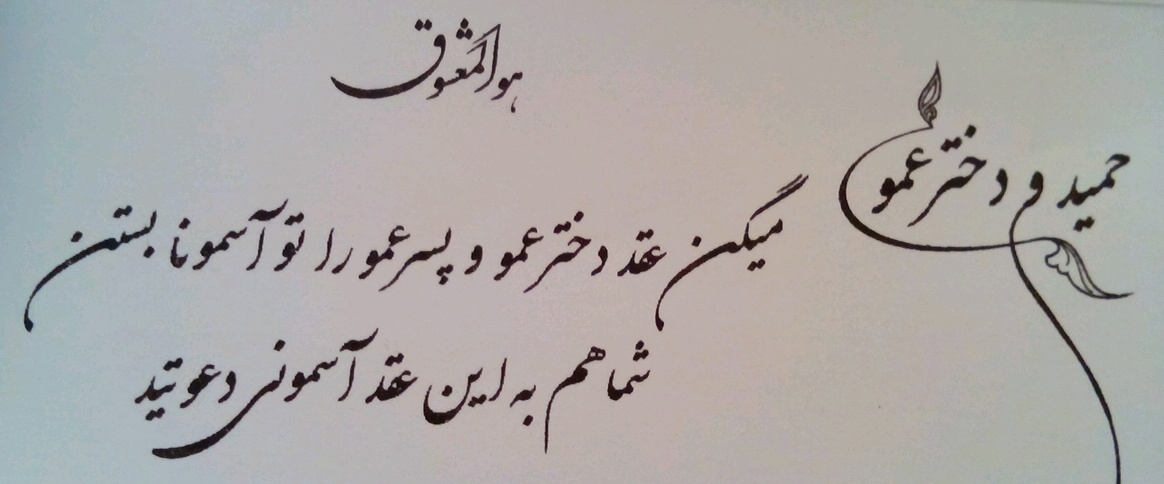 هوالمعشوق
حمید و دخترعمو
میگن عقد دخترعمو و پسرعمو را تو آسمونا بستن
شما هم به این عقد آسمونی دعوتید